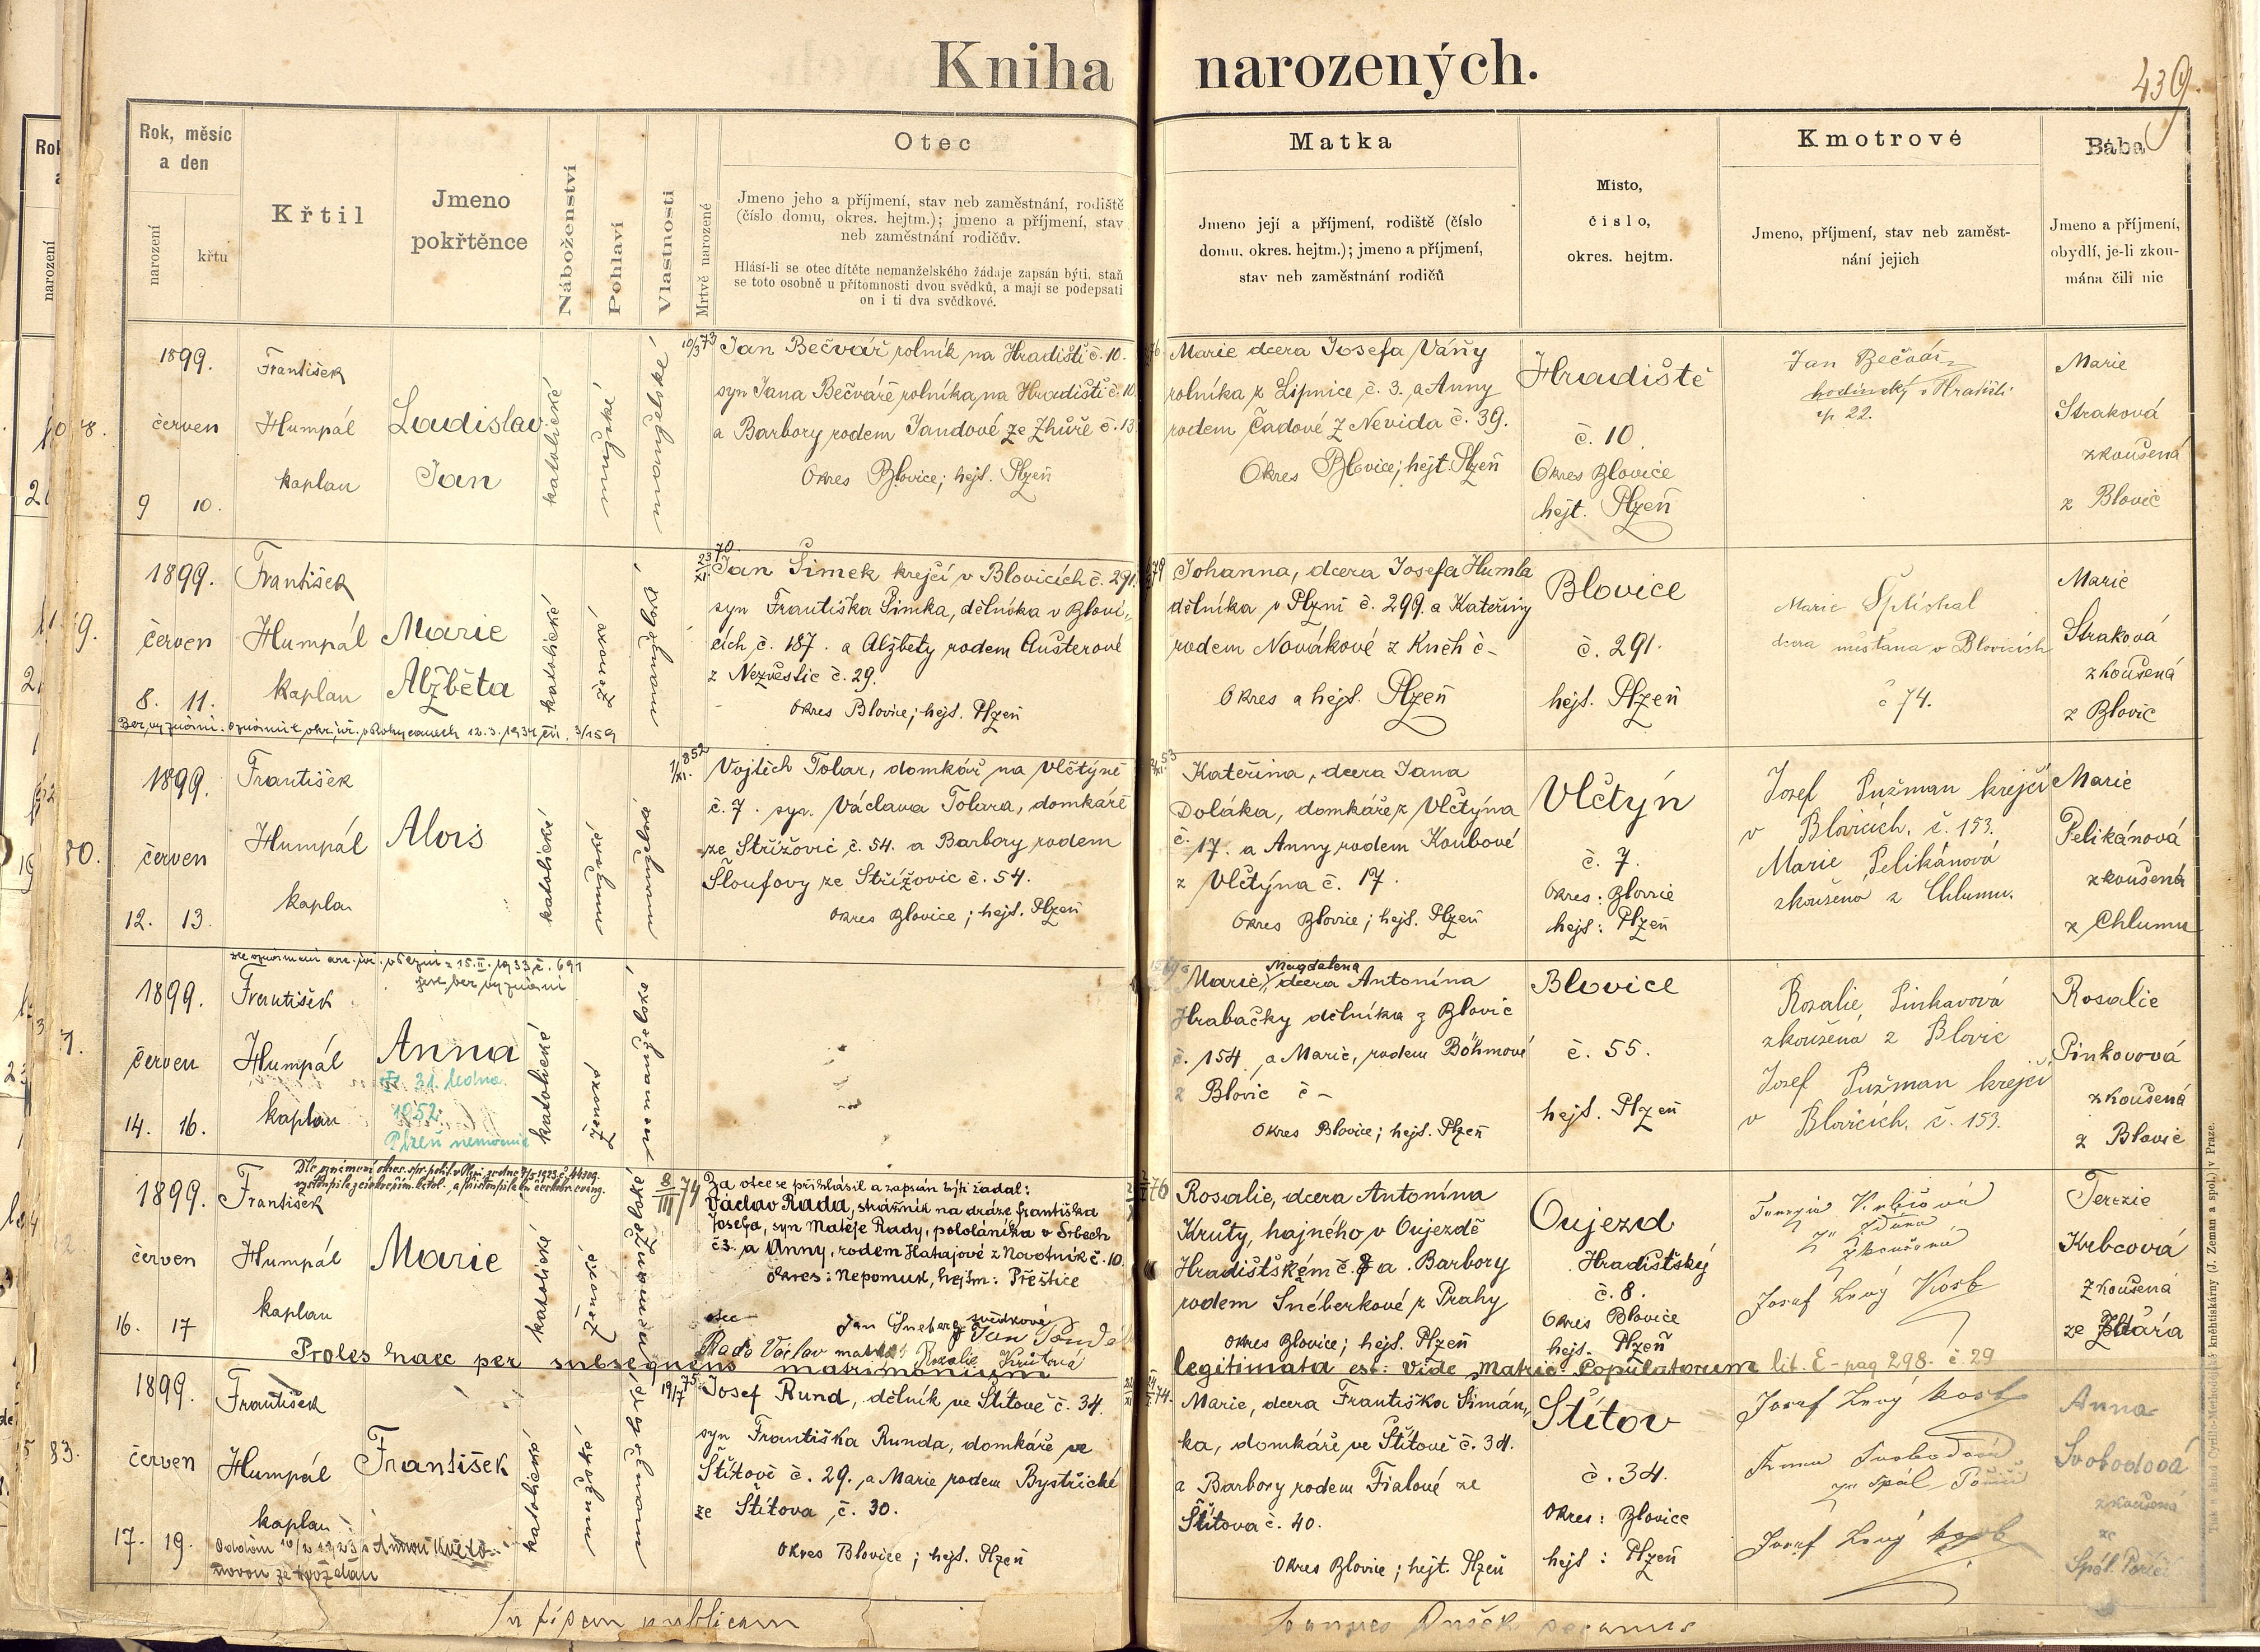 Kniha narozených.
439.
Rok, měsíc
a den
narození
křtu
Křtil
Jmeno
pokřtěnce
Náboženství
Pohlaví
Vlastnosti
Mrtvě narozené
Otec
Jmeno jeho a příjmení, stav neb zaměstnání, rodiště
(číslo domu, okres. hejtm.); jmeno a příjmení, stav
neb zaměstnání rodičův.
Hlásí-li se otec dítěte nemanželského žádaje zapsán býti, staň
se toto osobně u přítomnosti dvou svědků, a mají se podepsati
on i ti dva svědkové.
Matka
Jmeno její a příjmení, rodiště (číslo
domu, okres. hejtm.); jmeno a příjmení,
stav neb zaměstnání rodičů
Místo,
číslo,
okres. hejtm.
Kmotrové
Jmeno, příjmení, stav neb zaměst-
nání jejich
Bába
Jmeno a příjmení,
obydlí, je-li zkou-
mána čili nic
1899.
červen
9 10.
František
Humpál
kaplan
Ladislav
Jan
katolické
mužské
manželské
10/3 73
Jan Bečvář rolník na Hradišti č. 10.
syn Jana Bečváře rolníka na Hradišti č. 10
a Barbory rodem Jandové ze Zhůře č. 13
Okres Blovice; hejt. Plzeň
Marie dcera Josefa Váňy
rolníka z Lipnice č. 3. a Anny
rodem Čadové z Nevida č. 39.
Okres Blovice; hejt. Plzeň
Hradiště
č. 10.
Okres Blovice
hejt. Plzeň
Jan Bečvář
hodinský v Hradišti
čp. 22.
Marie
Straková
zkoušená
z Blovic
1899.
červen
8. 11.
František
Humpál
kaplan
Marie
Alžběta
katolické
ženské
manželské
23/XI. 70.
Jan Šimek krejčí v Blovicích č. 291.
syn Františka Šimka, dělníka v Blovi-
cích č. 187. a Alžběty rodem Austerové
z Nezvěstic č. 29.
Okres Blovice; hejt. Plzeň
Johanna, dcera Josefa Humla
dělníka v Plzni č. 299. a Kateřiny
rodem Novákové z Kněh č -
Okres a hejt. Plzeň
Blovice
č. 291.
hejt. Plzeň
Marie Šplíchal
dcera měšťana v Blovicích
č 74.
Marie
Straková
zkoušená
z Blovic
Bez vyznání. oznámil okr. úř. v Rokycanech 12.3.1934 čj. 3/159
1899.
80.
červen
12. 13.
František
Humpál
kaplan
Alois
katolické
mužské
manželské
1/XI. 852
Vojtěch Tolar, domkář na Vlčtýně
č. 7. syn Václava Tolara, domkáře
ze Střížovic č. 54. a Barbory rodem
Šloufovy ze Střížovic č. 54.
Okres Blovice; hejt. Plzeň
Kateřina, dcera Jana
Doláka, domkáře z Vlčtýna
č. 17. a Anny rodem Koubové
z Vlčtýna č. 17.
Okres Blovice; hejt. Plzeň
Vlčtýn
č. 7.
Okres: Blovice
hejt: Plzeň
Josef Pužman krejčí
v Blovicích, č. 153.
Marie Pelikánová
zkoušena z Chlumu.
Marie
Pelikánová
zkoušená
z Chlumu
dle oznámení okr. úř. v Plzni z 15.II.1933 č. 691
jest bez vyznání
1899.
červen
14. 16.
František
Humpál
kaplan
Anna
31. ledna.
1952.
Plzeň nemocnice
katolické
ženské
nemanželské
Marie Magdalena, dcera Antonína
Hrabačky dělníka z Blovic
č. 154. a Marie, rodem Böhmové
z Blovic č -
Okres Blovice; hejt. Plzeň
Blovice
č. 55.
hejt. Plzeň
Rozalie Pinkavová
zkoušená z Blovic
Josef Pužman krejčí
v Blovicích, č. 153.
Rosalie
Pinkovová
zkoušená
z Blovic
1899.
červen
16. 17
František
Humpál
kaplan
Marie
katolické
ženské
nemanželské
8/III 74
Za otce se přihlásil a zapsán býti žádal:
Václav Rada, strážník na dráze Františka
Josefa, syn Matěje Rady, pololáníka v Srbech
č 3. a Anny, rodem Hatajové z Novotník č. 10.
okres: Nepomuk, hejtm: Přeštice
otec
svědkové
Jan Šneberg
Rada Václav matka: Rozalie Krutová
Rosalie, dcera Antonína
Kruty, hajného v Oujezdě
Hradištském č. 8 a Barbory
rodem Šnéberkové z Prahy
Okres Blovice; hejt. Plzeň
Oujezd
Hradištský
č. 8.
Okres Blovice
hejt. Plzeň
Terezie Krbcová
ze Ždára
zkoušená
Josef Levý Kost
Terezie
Krbcová
zkoušená
ze Ždára
Proles haec per subsequens matrimonium legitimata est: Vide Matric. Copulatorum lit. E - pag 298. č. 29
1899.
83.
červen
17. 19.
František
Humpál
kaplan
František
katolické
mužské
manželské
19/7 75
Josef Rund, dělník ve Štítově č. 34.
syn Františka Runda, domkáře ve
Štítově č. 29. a Marie rodem Bystřické
ze Štítova č. 30.
Okres Blovice; hejt. Plzeň
Marie, dcera Františka Šimán-
ka, domkáře ve Štítově č. 34.
a Barbory rodem Fialové ze
Štítova č. 40.
Okres Blovice; hejt. Plzeň
Štítov
č. 34.
Okres: Blovice
hejt: Plzeň
Josef Levý kost
Anna Svobodová
ze Spál. Poříčí
Josef Levý kost
Anna
Svobodová
zkoušená
ze
Spál. Poříčí
Oddán 10/2 1923 s Annou
In fidem publicam